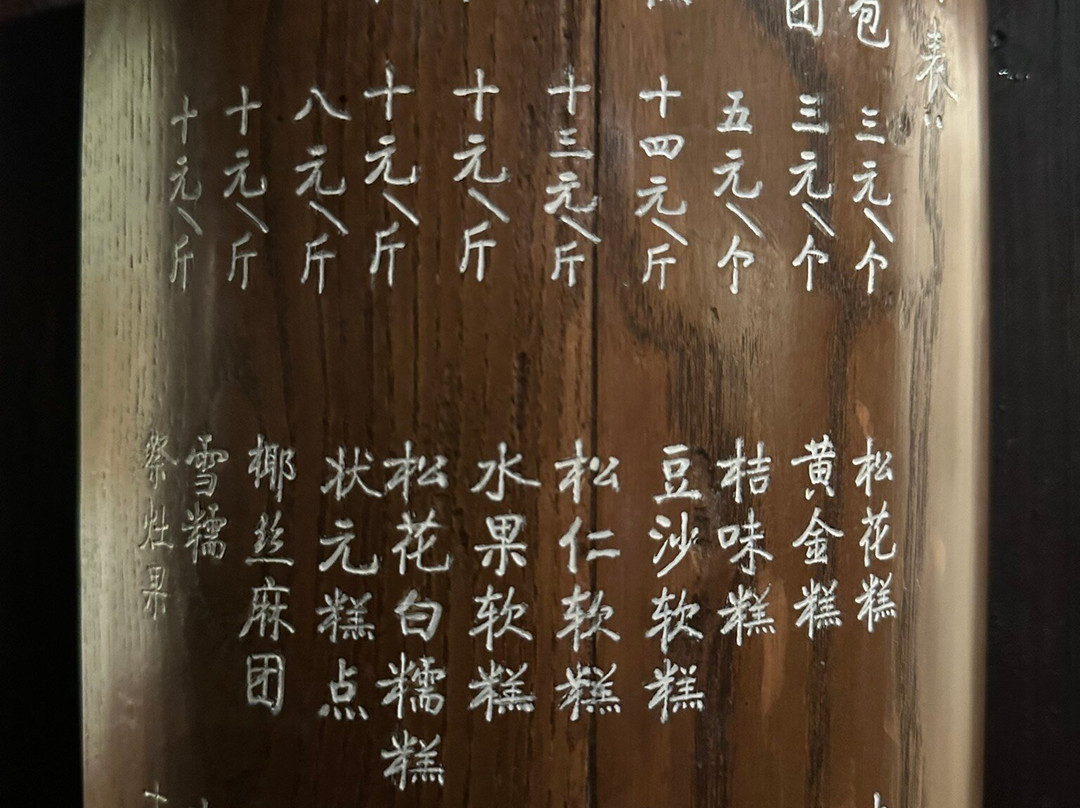 表
包
三元/个
团
三元/个
五元/个
十四元/斤
十三元/斤
十元/斤
十元/斤
八元/斤
十元/斤
十元/斤
松花糕
黄金糕
桔味糕
豆沙软糕
松仁软糕
水果软糕
松花白糯糕
状元糕点
椰丝麻团
雪糯
祭灶果